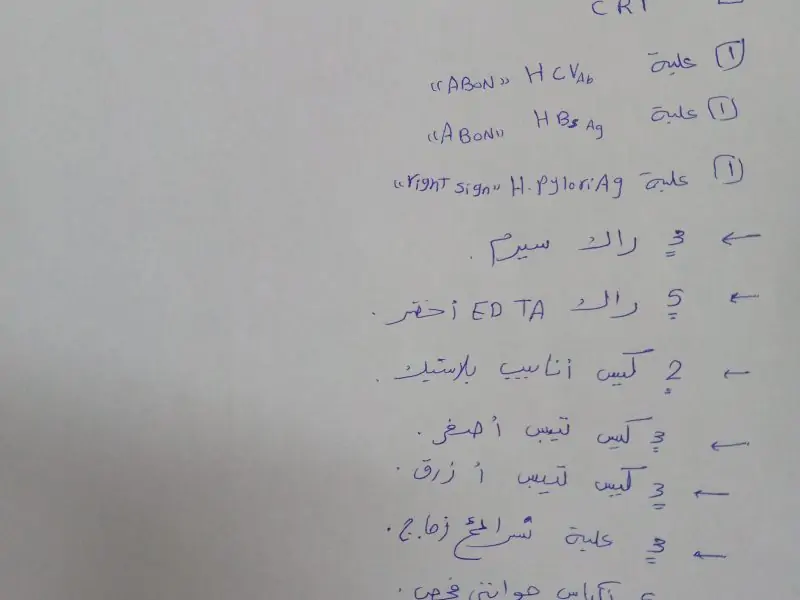 CRP
١ علبة HCV Ab «ABON»
١ علبة HBs Ag «ABON»
١ علبة H.pylori Ag «right sign»
← 3 راك سيرم .
← 5 راك EDTA أخضر .
← 2 كيس أنابيب بلاستيك .
← 3 كيس تيبس أصفر .
← 3 كيس تيبس أزرق .
← 3 علبة شرائح زجاج .
أكياس جوانتي فحص .